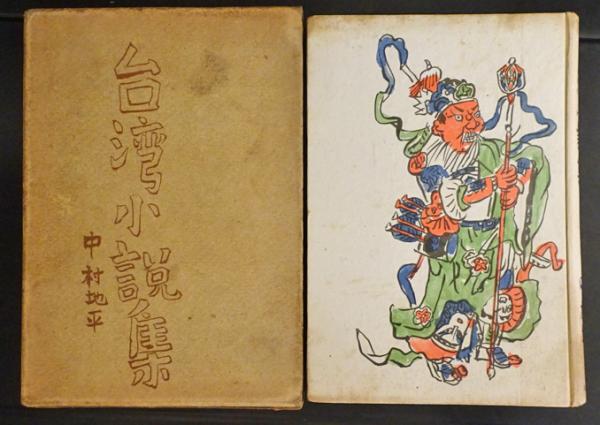 台湾小説集
中村地平